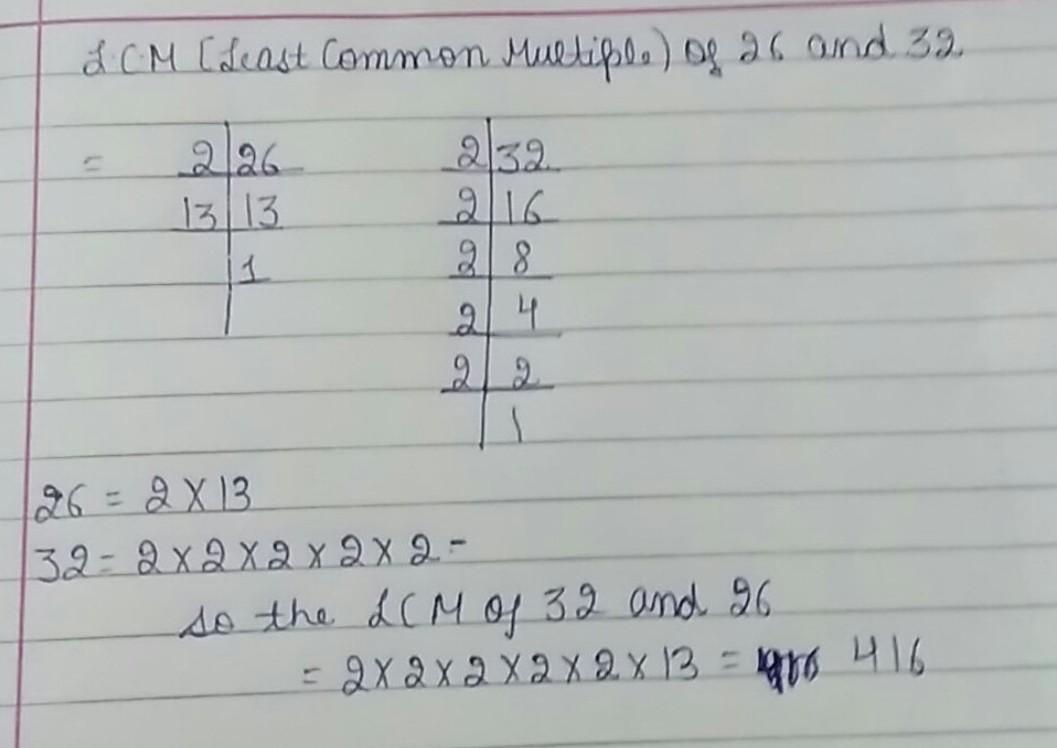 L.C.M (Least Common Multiple) of 26 and 32
= 2 26 2 32
13 13 2 16
1 2 8
2 4
2 2
1
26 = 2 X 13
32 = 2 X 2 X 2 X 2 X 2 -
so the LCM of 32 and 26
= 2 X 2 X 2 X 2 X 2 X 13 = 416